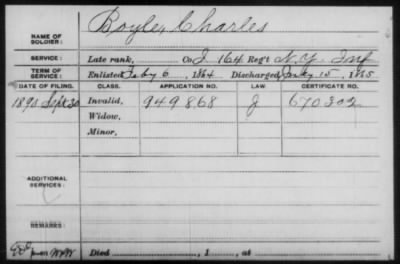 Boyle, Charles
NAME OF SOLDIER:
SERVICE: Late rank, Co. I, 164 Reg't N.Y. Inf
TERM OF SERVICE: Enlisted Feby 6, 1864 Discharged July 15, 1865
DATE OF FILING. CLASS. APPLICATION NO. LAW. CERTIFICATE NO.
1890 Sept 30 Invalid, 949868 J 670302
Widow,
Minor,
ADDITIONAL SERVICES:
REMARKS:
Died , 1 , at